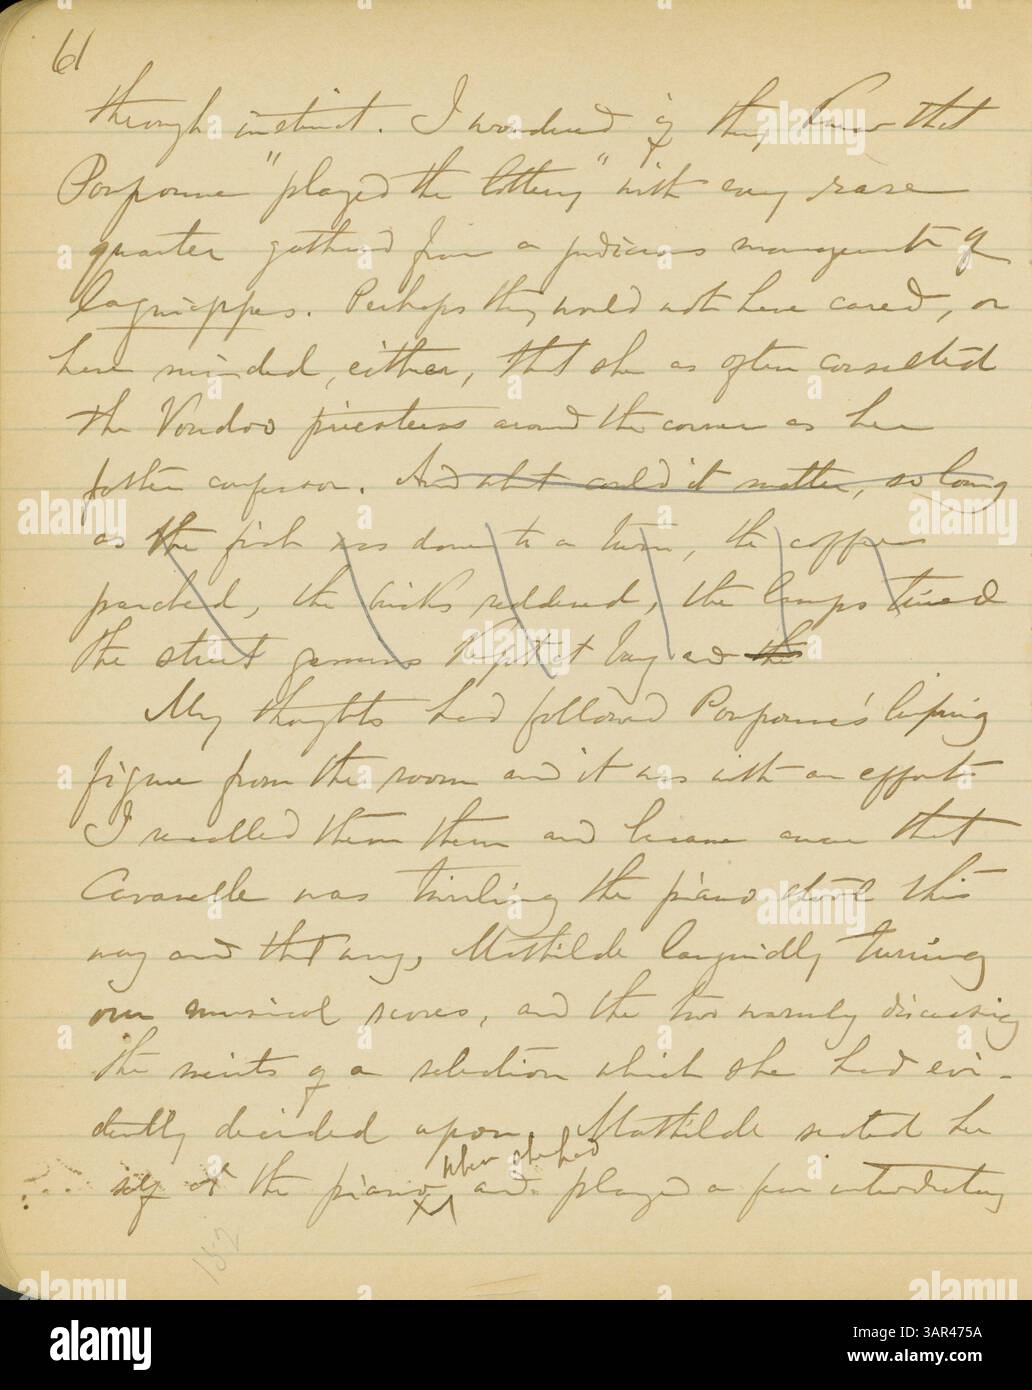 61
through instinct. I wondered if they knew that
Pomponne "played the lottery" with every rare
quarter gathered from a judicious management of
lagniappes. Perhaps they would not have cared, or
have minded, either, that she as often consulted
the Voudoo priestess around the corner as her
foster confessor. And what could it matter, so long
as the fish was done to a turn, the coffee
parched, the bricks reddened, the lamps
the street gamins kept at bay and the
My thoughts had followed Pomponne's limping
figure from the room and it was with an effort
I recalled them them and became aware that
Cavanelle was twirling the piano stool this
way and that way, Mathilde languidly turning
our musical scores, and the two warmly discussing
the merits of a selection which she had evi-
dently decided upon. Mathilde seated her
when she had
self at the piano and played a few introductory
152
alamy
Image ID: 3AR475A
www.alamy.com